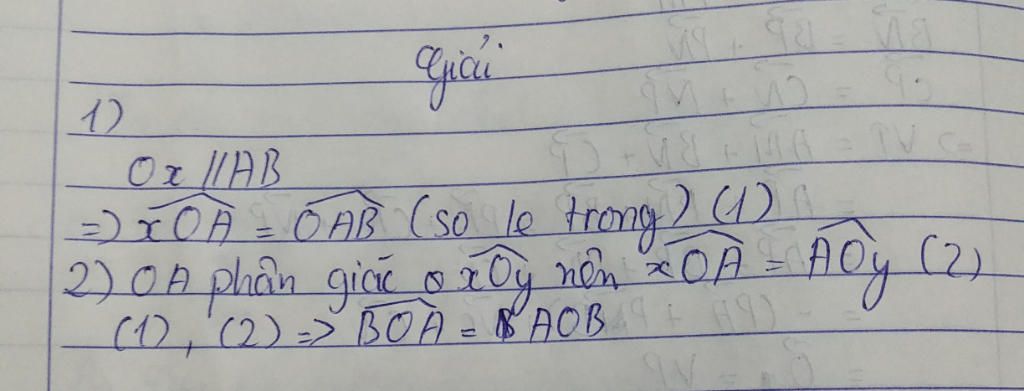 Giải
1)
Ox // AB
=> xOA = OAB (so le trong) (1)
2) OA phân giác xOy nên xOA = AOy (2)
(1), (2) => BOA = AOB